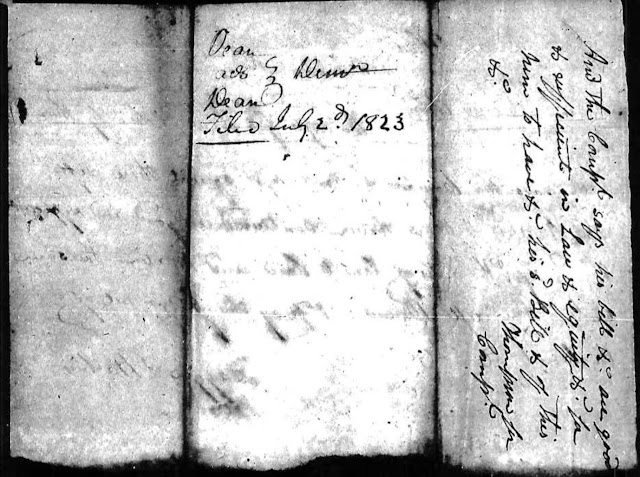 Dean
ads } Demr
Dean
Filed July 2d. 1823
And the Compt says his bill &c are good
& sufficient in Law & equity &c for
him to have &c his sd Bill & of this
&c
Thompson for
Compt